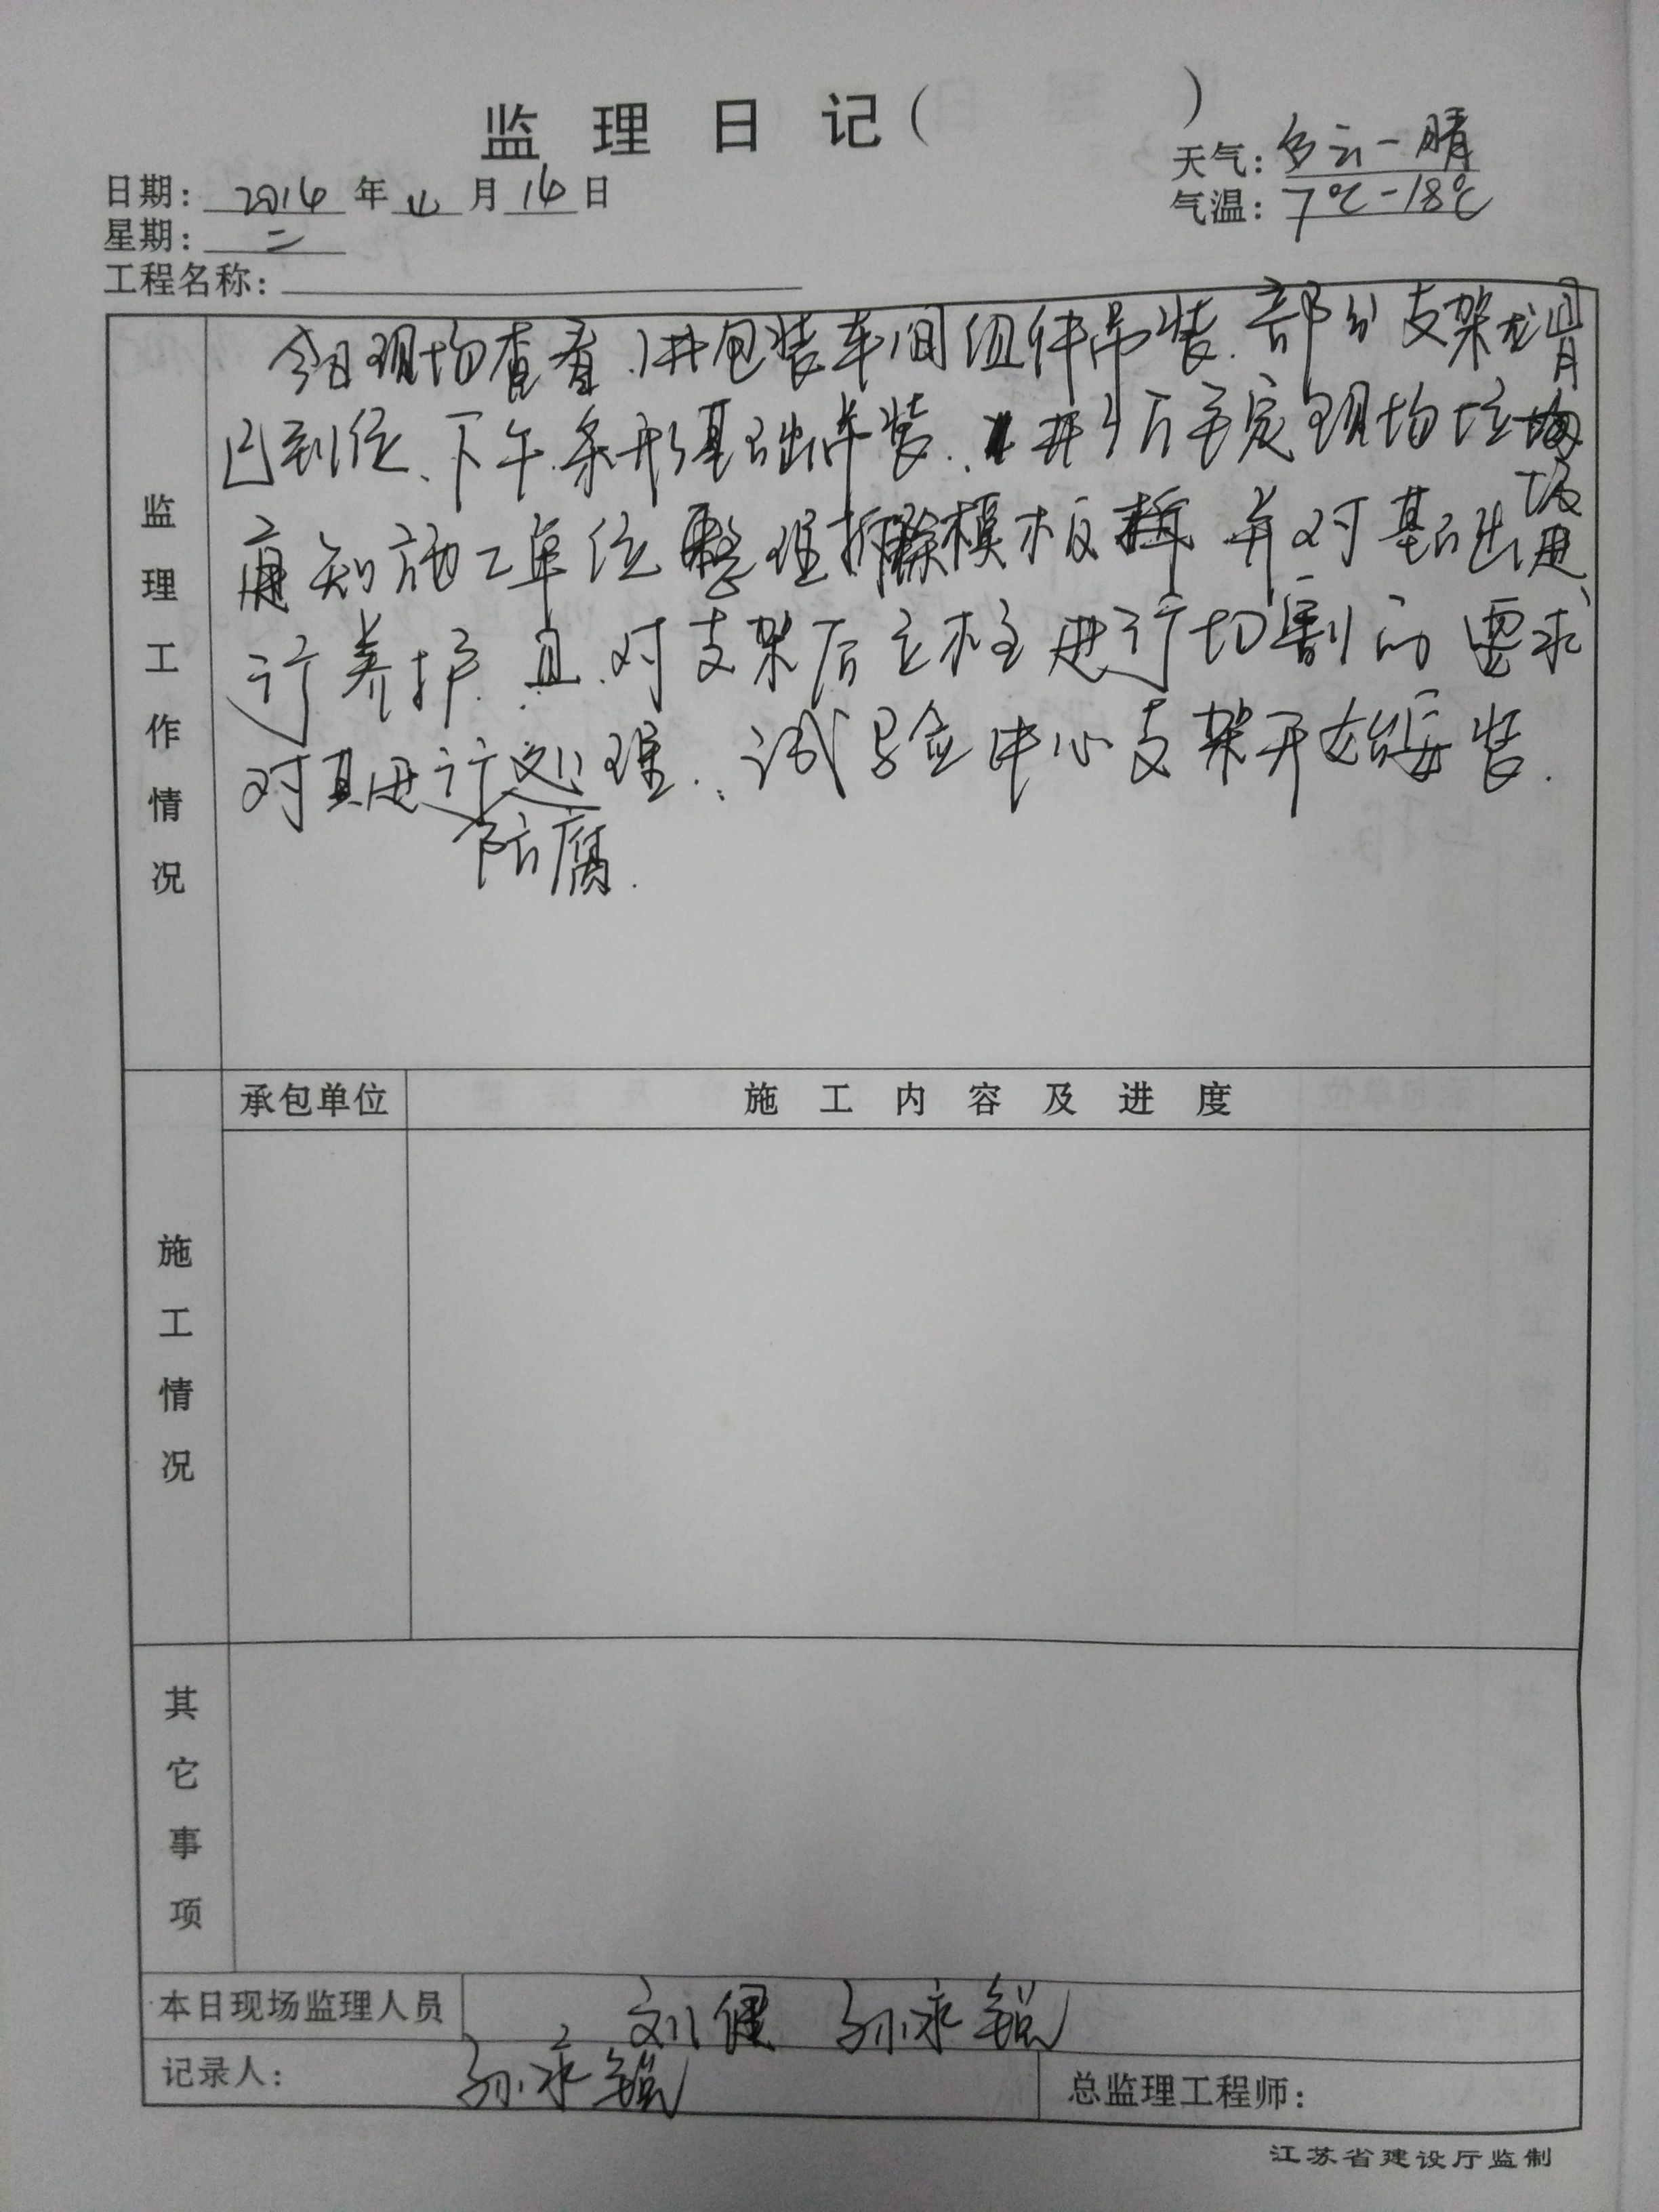 监理日记（ ）
天气：多云－晴
日期：2014年 月 日
气温：7℃－18℃
星期：二
工程名称：
监理工作情况
今日现场查看，1#包装车间组件吊装，部分支架龙骨
已到位、下午条形基础吊装。 现场垃圾
通知施工单位整理拆除模板 并对基础进
行养护，且对支架后立柱进行切割的要求
对其进行防腐处理。试验中心支架开始安装.
承包单位 施工内容及进度
施工情况
其它事项
本日现场监理人员 刘健 孙永锐
记录人： 孙永锐 总监理工程师：
江苏省建设厅监制